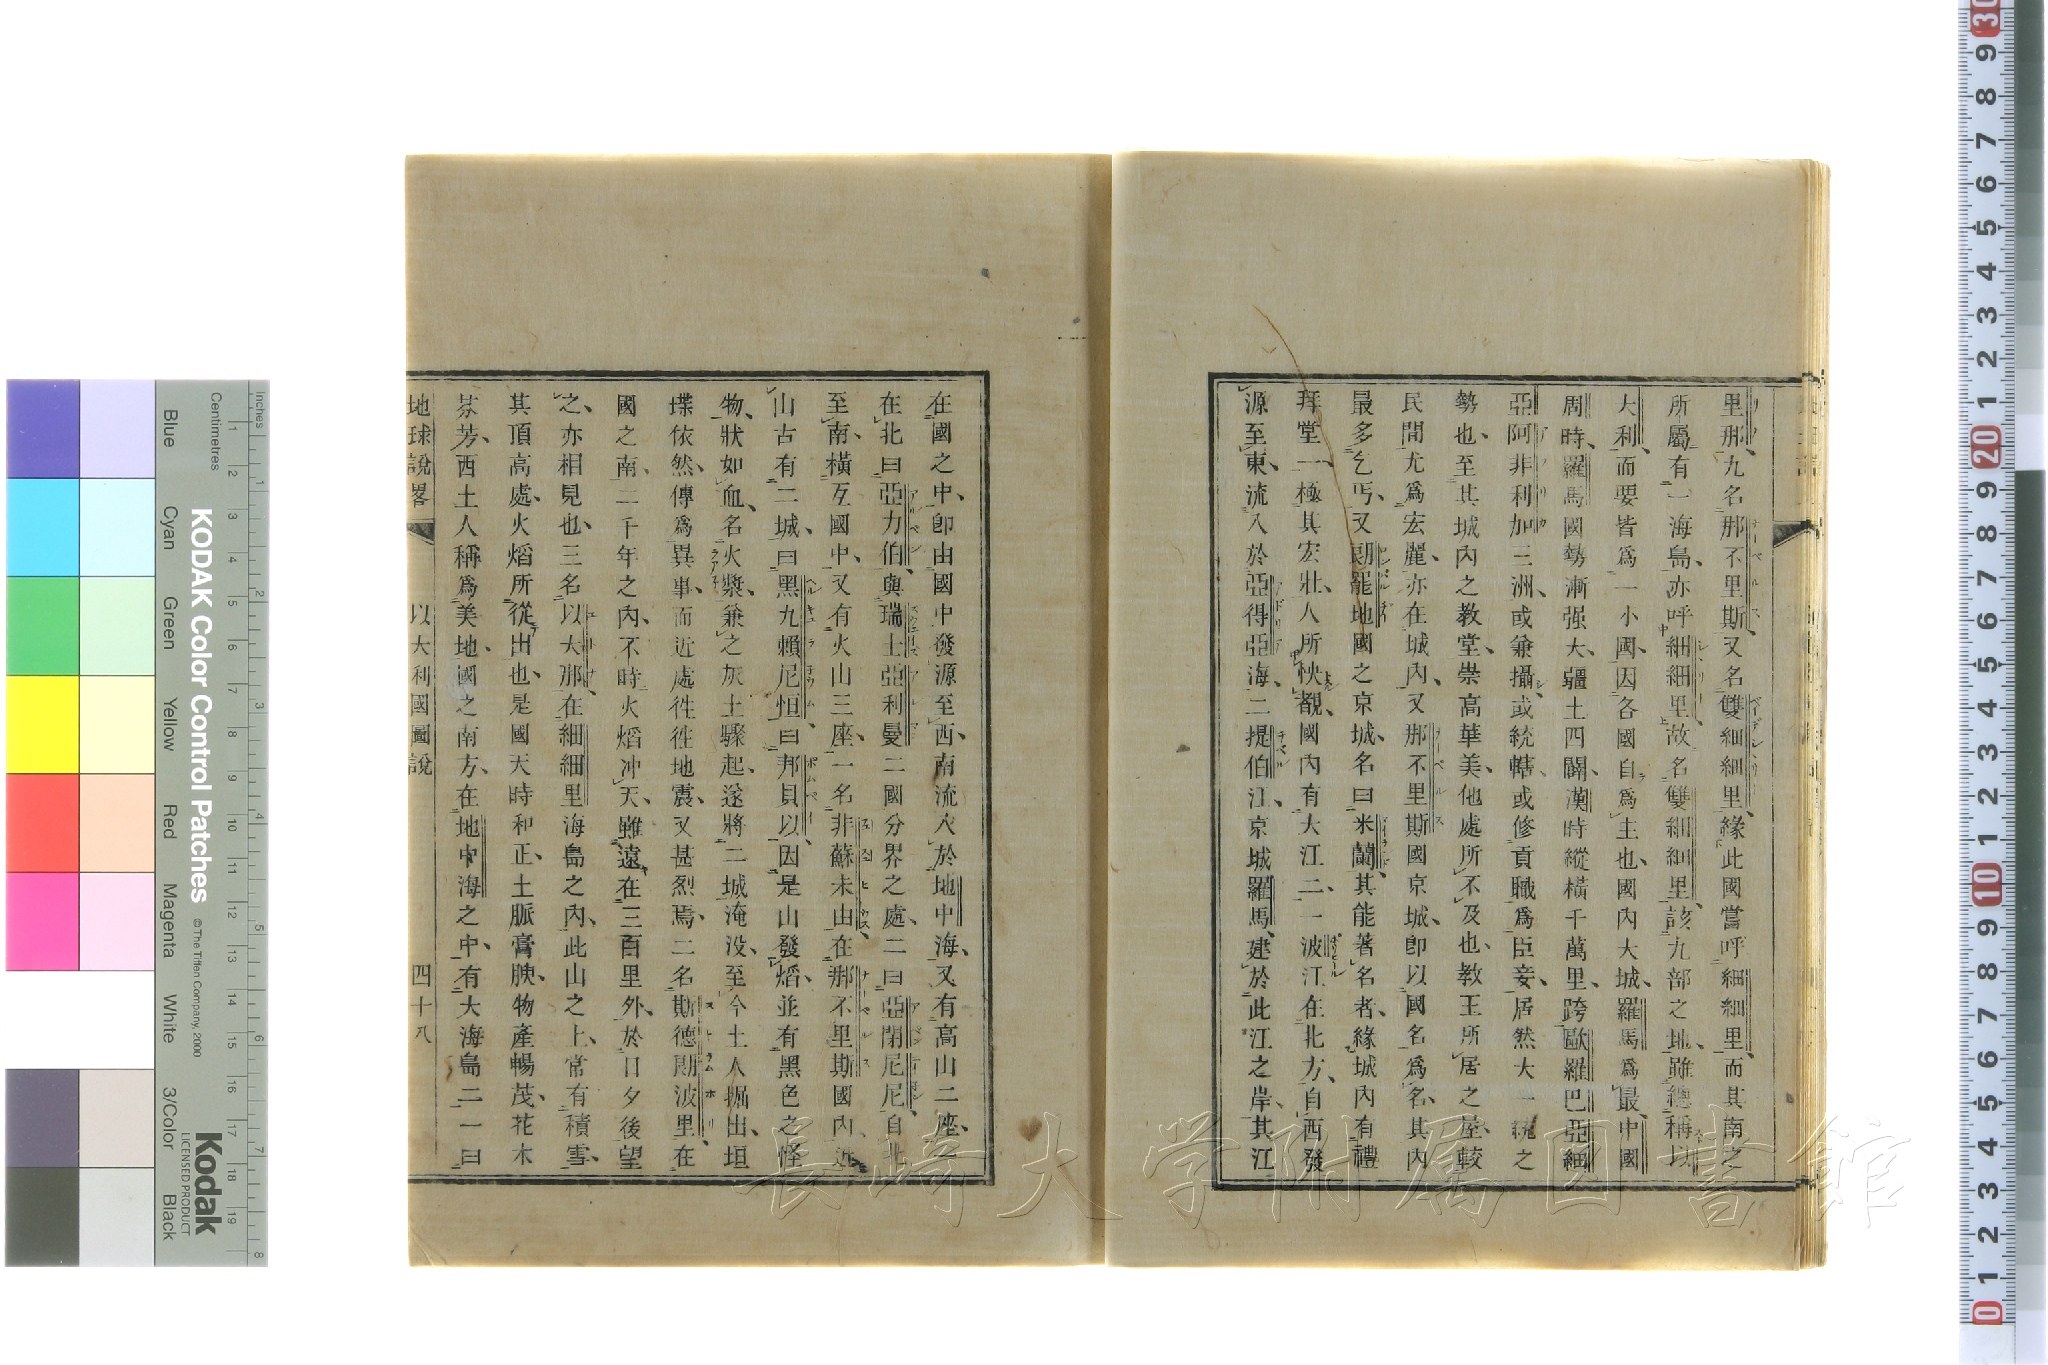 里那、九名那不里斯、又名雙細細里、緣此國嘗呼細細里、而其南之
所屬有一海島、亦呼細細里、故名雙細細里、該九部之地、雖總稱以
大利、而要皆爲一小國、因各國自爲主也、國内大城、羅馬爲最、中國
周時、羅馬國勢漸强大、疆土四闢、漢時縱橫千萬里、跨歐羅巴亞細
亞阿非利加三洲、或兼攝、或統轄、或修貢職爲臣妾、居然大一統之
勢也、至其城内之教堂、崇高華美、他處所不及也、教王所居之屋、較
民間尤爲宏麗、亦在城内、又那不里斯國京城、卽以國名爲名、其内
最多乞丐、又
地國之京城、名曰米蘭、其能著名者、緣城内有禮
拜堂一、極其宏壯、人所快覩、國内有大江二、一波江在北方、自西發
源至東、流入於亞得亞海、二提伯江、京城羅馬、建於此江之岸、其江
在國之中、卽由國中發源至西南流入於地中海、又有高山二座、一
在北曰亞力伯、與瑞士亞利曼二國分界之處、二曰亞閉尼尼、自北
至南、橫亙國中、又有火山三座、一名非蘇未由、在那不里斯國内、近
山古有二城、曰黑九賴尼恒、曰邦貝以、因是山發熖、並有黑色之怪
物、狀如血、名火漿、兼之灰土驟起、遂將二城淹没、至今土人掘出、垣
堞依然、傳爲異事、而近處往往地震、又甚烈焉、二名斯德則波里、在
國之南、二千年之内、不時火熖冲天、雖遠在三百里外、於日夕後望
之、亦相見也、三名以大那、在細細里海島之内、此山之上、常有積雪、
其頂高處、火熖所從出也、是國天時和正、土脈膏腴、物產暢茂、花木
芬芳、西土人稱爲美地、國之南方、在地中海之中、有大海島二、一曰
地球說畧 以大利國圖說 四十八
KODAK Color Control Patches
© The Tiffen Company, 2000
Kodak
LICENSED PRODUCT
Inches
Centimetres
Blue Cyan Green Yellow Red Magenta White 3/Color Black
長崎大学附属図書館